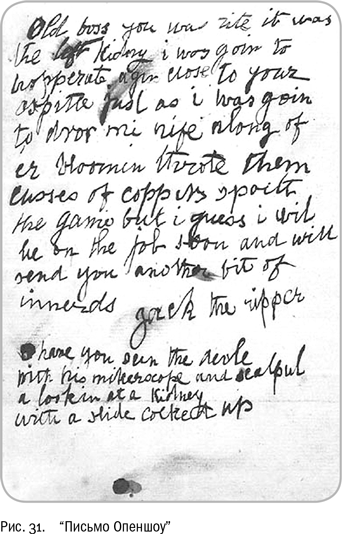 Old boss you was rite it was
the left kidny i was goin to
hopperate agin close to your
ospitle just as i was goin
to dror mi nife along of
er bloomin throte them
cusses of coppers spoilt
the game but i guess i wil
be on the job soon and will
send you another bit of
innerds
Jack the ripper
O have you seen the devle
with his mikerscope and scalpul
a lookin at a Kidney
with a slide cocked up
Рис. 31. “Письмо Опеншоу”